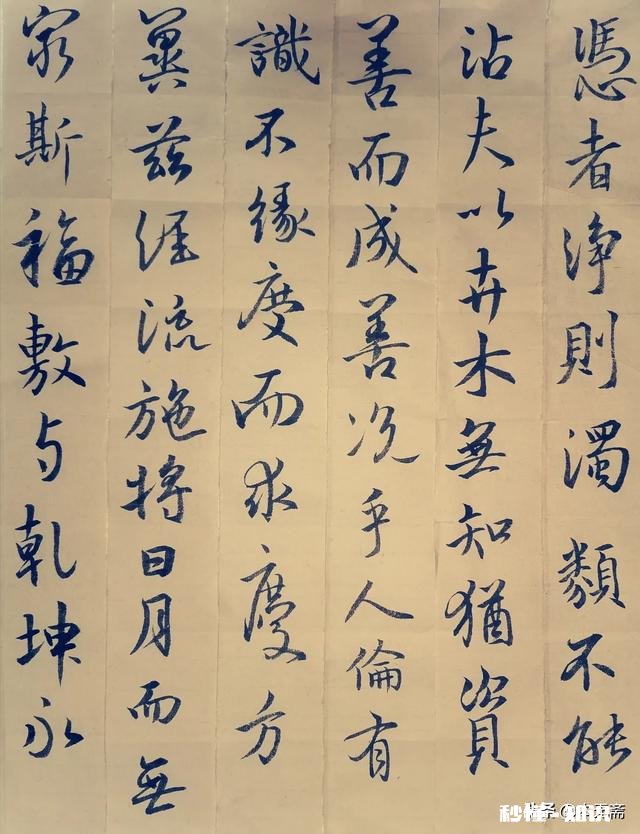 憑者淨則濁類不能
沾夫以卉木無知猶資
善而成善況乎人倫有
識不緣慶而求慶方
冀茲經流施將日月而無
窮斯福敷与乾坤永
秒懂-知识